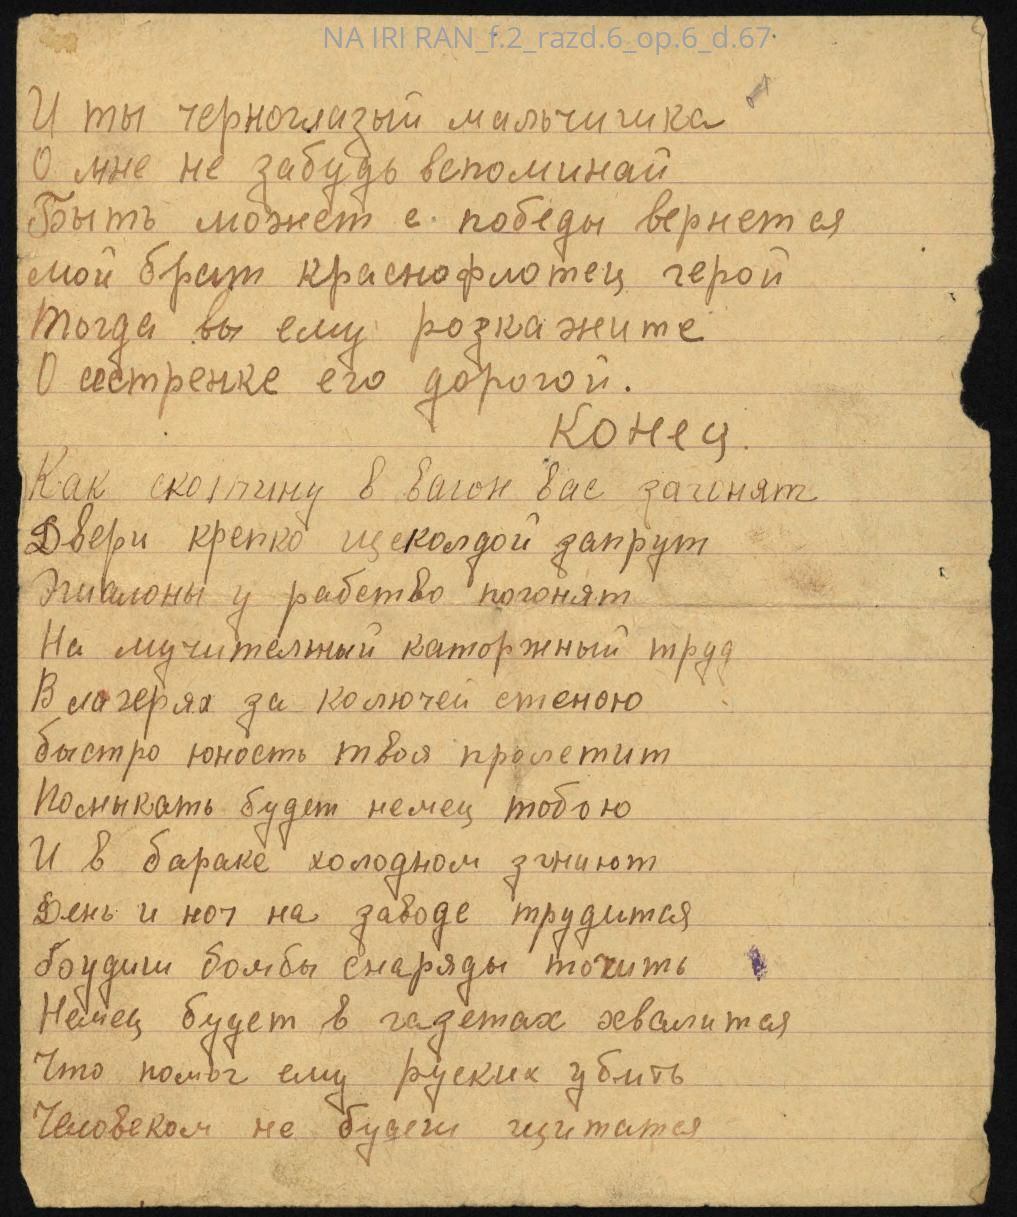 NA IRI RAN_f.2_razd.6_op.6_d.67
И ты черноглазый мальчишка
О мне не забудь вспоминай
Быть может с победы вернется
мой брат краснофлотец герой
Тогда вы ему розкажите
О сестренке его дорогой.
Конец.
Как скотину в вагон вас загонят
Двери крепко щеколдой запрут
Эшалоны у рабство погонят
На мучителный каторжный труд
В лагерях за колючей стеною
быстро юность твоя пролетит
Помыкать будет немец тобою
И в бараке холодном згниют
День и ноч на заводе трудится
Боудиш бомбы снаряды точить
Немец будет в газетах хвалится
Что помог ему руских убить
Человеком не будеш щитатся